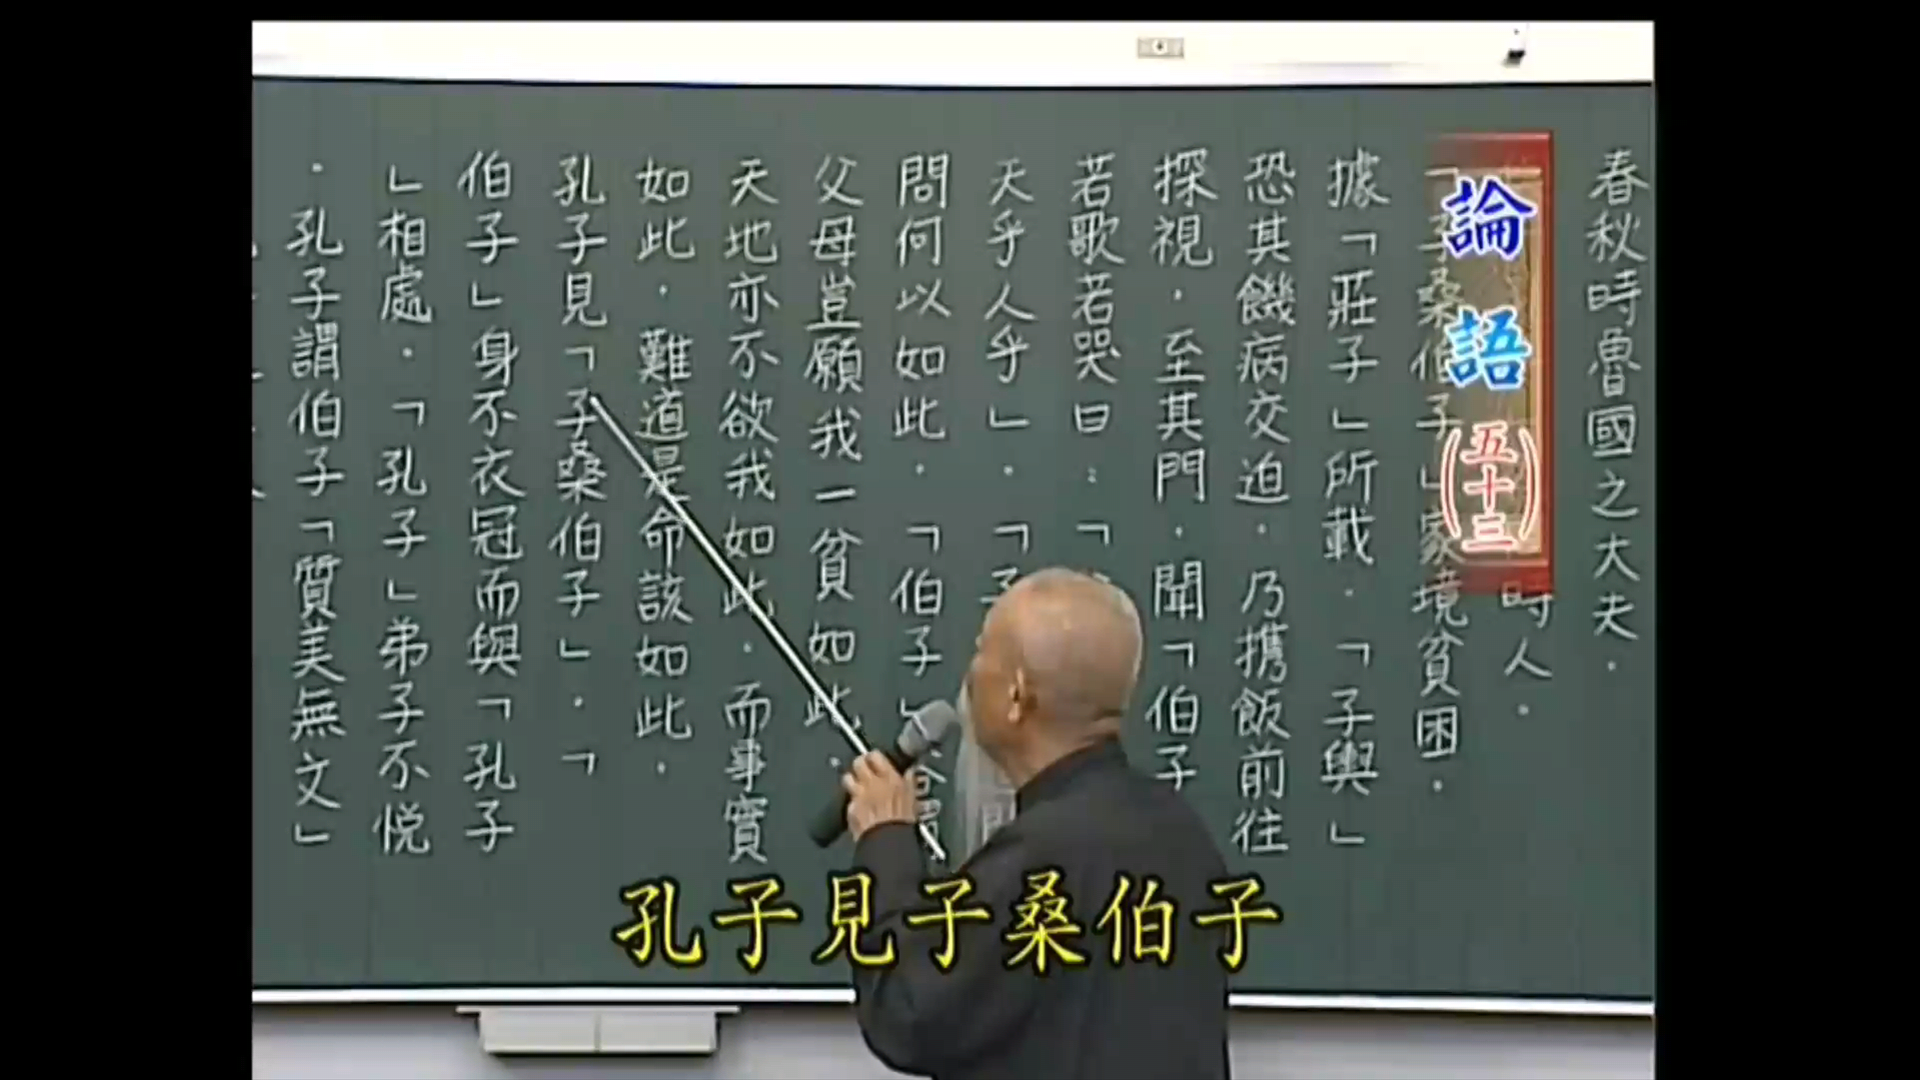 論語
(五十三)
春秋時魯國之大夫．
時人．
「子桑伯子」家境貧困．
據「莊子」所載．「子輿」
恐其饑病交迫．乃攜飯前往
探視．至其門．聞「伯子
若歌若哭曰：「
天乎人乎」．「子
問何以如此．「伯子」答
父母豈願我一貧如此．
天地亦不欲我如此．而事實
如此．難道是命該如此．
孔子見「子桑伯子」．「
伯子」身不衣冠而與「孔子
」相處．「孔子」弟子不悅
．孔子謂伯子「質美無文」
孔子見子桑伯子